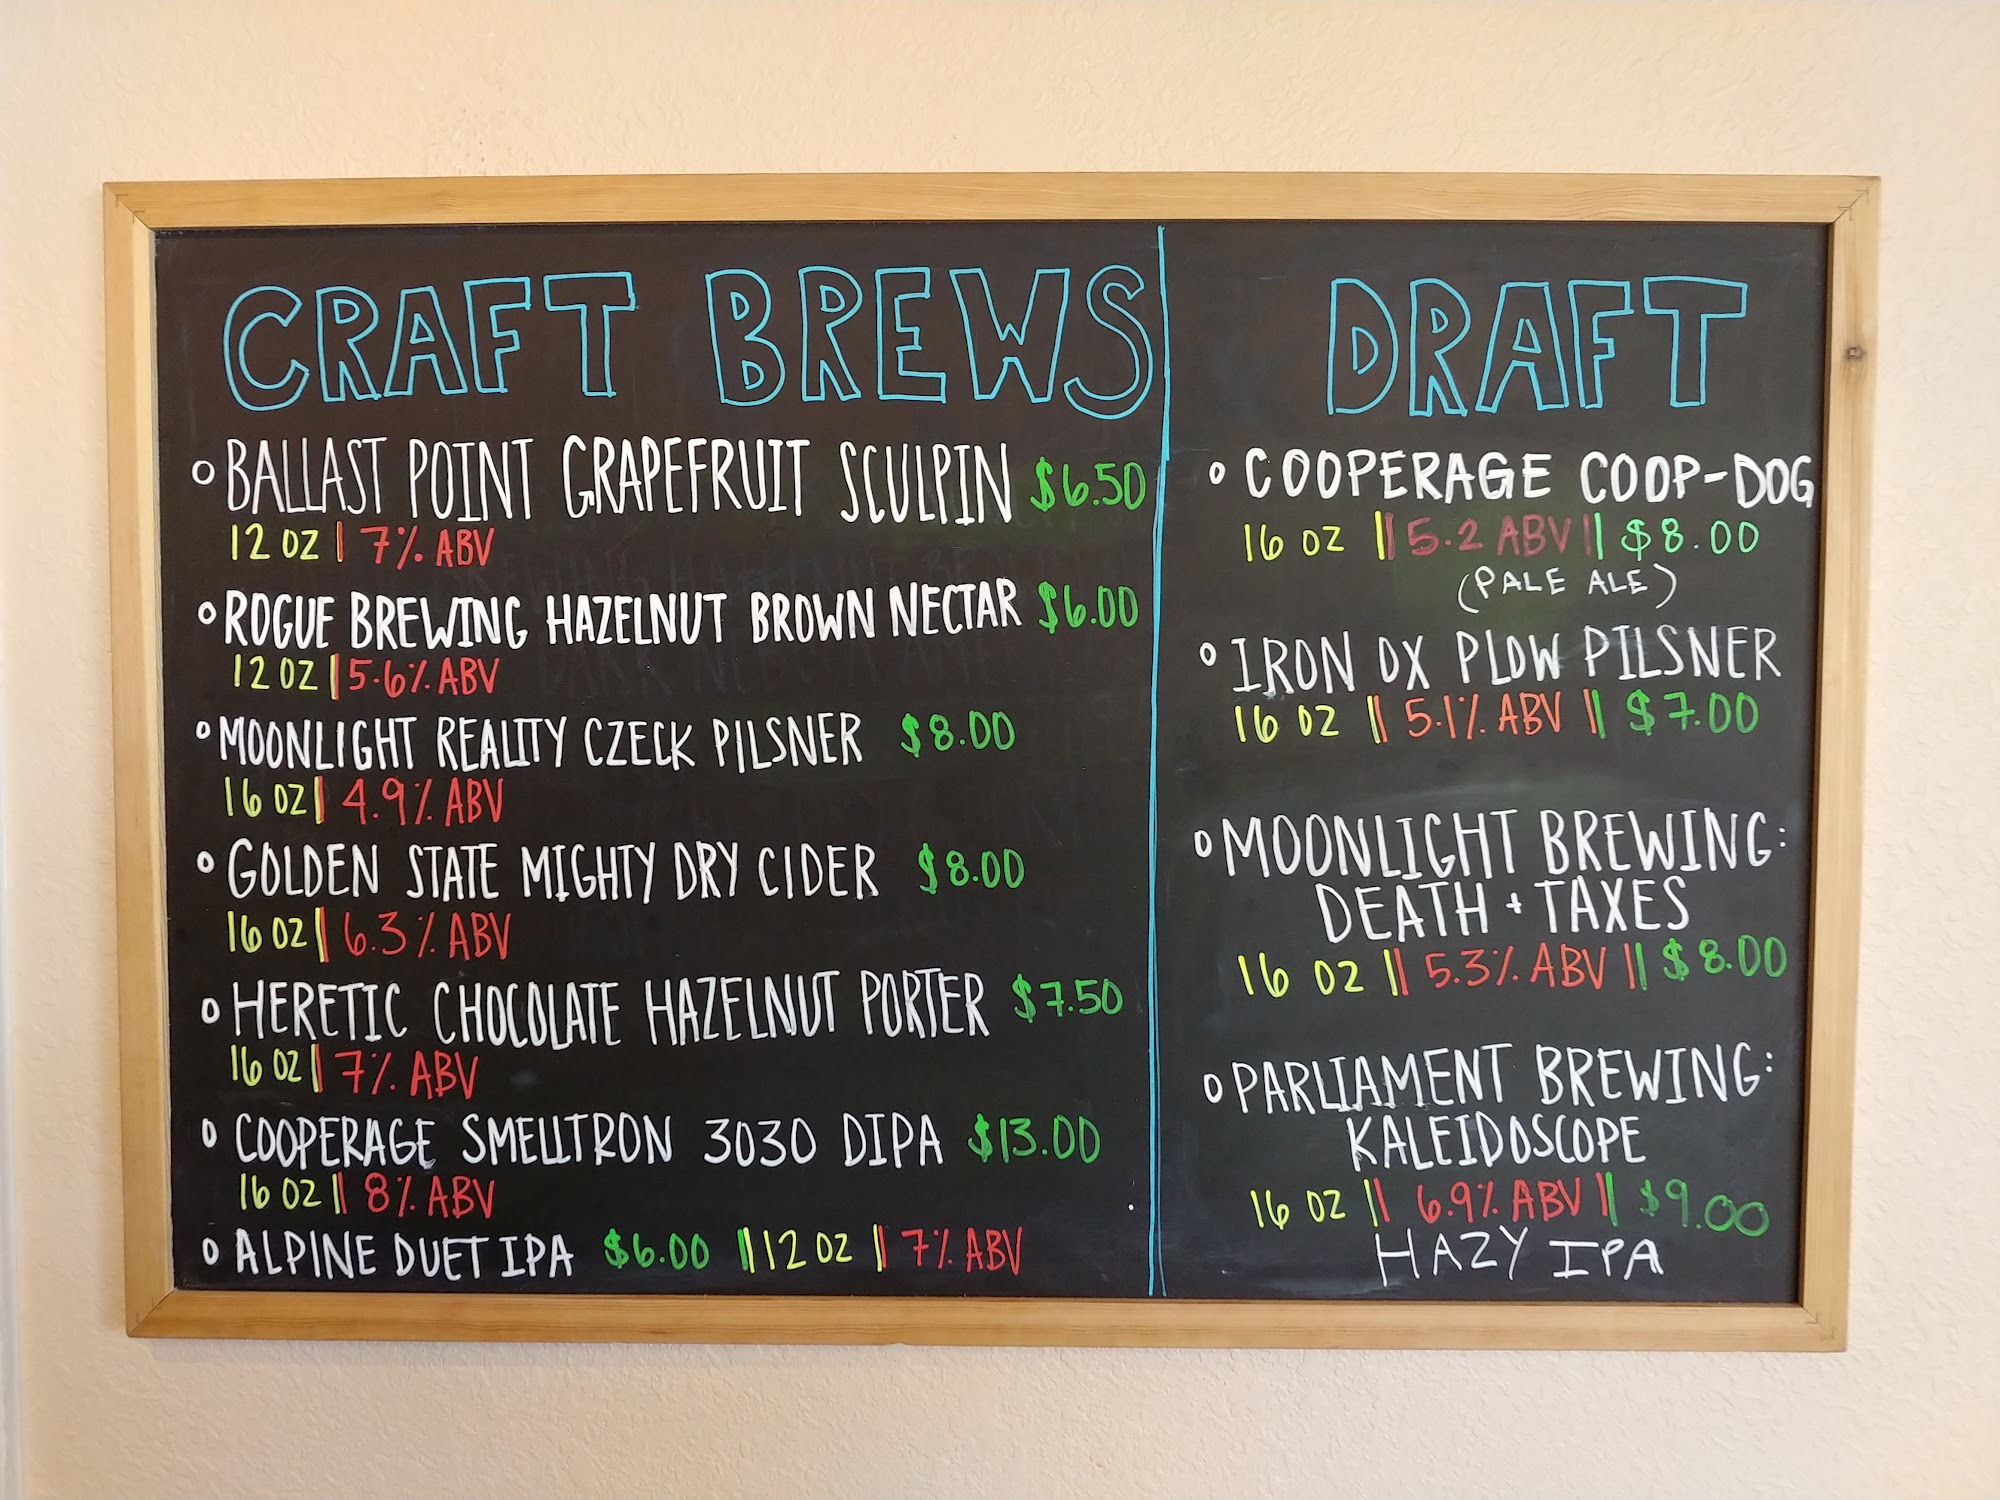 CRAFT BREWS
BALLAST POINT GRAPEFRUIT SCULPIN $6.50
12 OZ | 7% ABV
ROGUE BREWING HAZELNUT BROWN NECTAR $6.00
12 OZ | 5.6% ABV
MOONLIGHT REALITY CZECK PILSNER $8.00
16 OZ | 4.9% ABV
GOLDEN STATE MIGHTY DRY CIDER $8.00
16 OZ || 6.3% ABV
HERETIC CHOCOLATE HAZELNUT PORTER $7.50
16 OZ || 7% ABV
COOPERAGE SMELLTRON 3030 DIPA $13.00
16 OZ || 8% ABV
ALPINE DUET IPA $6.00 || 12 OZ || 7% ABV
DRAFT
COOPERAGE COOP-DOG
16 OZ || 5.2 ABV || $8.00
(PALE ALE)
IRON OX PLOW PILSNER
16 OZ || 5.1% ABV || $7.00
MOONLIGHT BREWING:
DEATH + TAXES
16 OZ || 5.3% ABV || $8.00
PARLIAMENT BREWING:
KALEIDOSCOPE
16 OZ || 6.9% ABV || $9.00
HAZY IPA